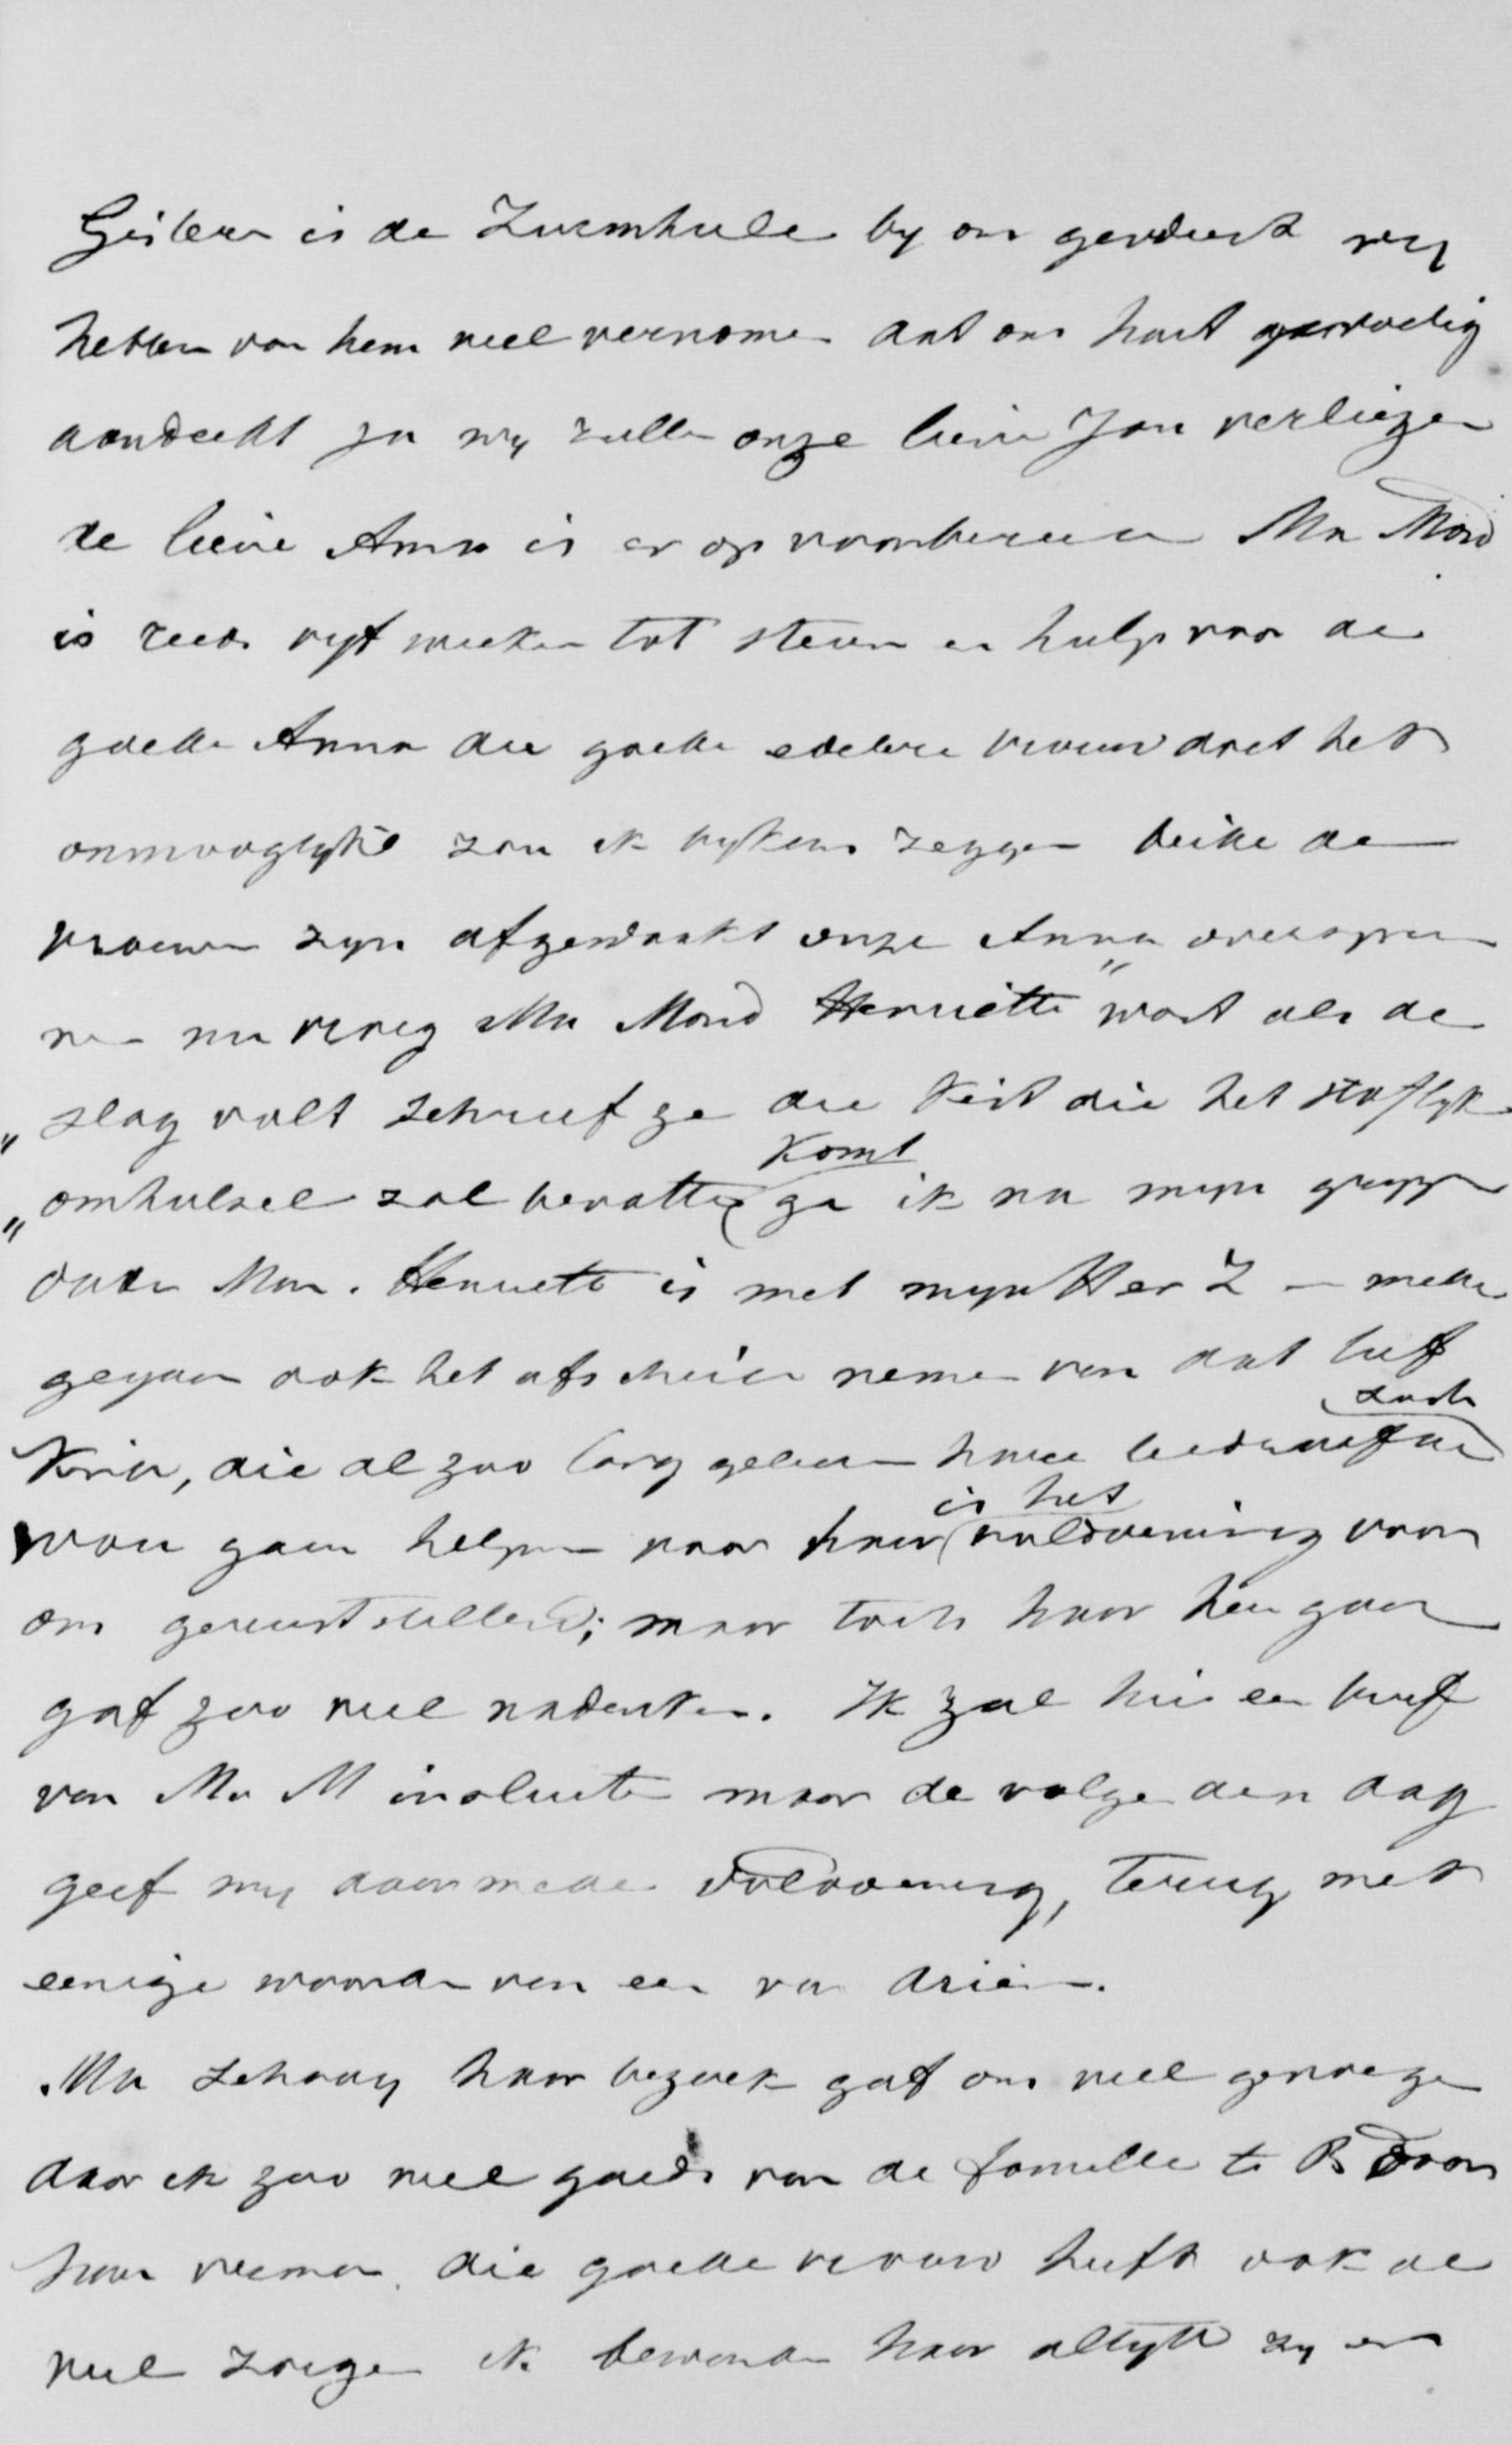 Gisteren is de Zuemhule by ons geweest wy
hebben van hem veel vernomen dat ons hart
aandeedt ja wy zullen onze lieve Jan verliezen
de lieve Anna is er op voorbereid Ma Mond
is reeds vyf weeken tot steun en hulp voor de
goede Anna die goede edele vrouw doet het
onmooglyke zou ik zeggen beide de
vrouwen zyn afgemaakt onze Anna
Ma Mond Henriëtte want als de
„ slag valt schreef ze die kist die het stoflyk
„ omhulsel zal bevatten komt ga ik na myn
oude Man. Henriette is met mynHeer Z – mede
gegaan ook het afscheid nemen van dat lief
kind, die al zoo lang geleden hare zusch
wou gaan helpen voor haar is het voldoening voor
ons geruststellend; maar toch haar heengaan
gaf zoo veel nadenken. Ik zal hier een brief
van Ma M insluite maar de volgenden dag
geef my daarmede voldoening, terug met
eenige woorden van een van drieën.
Ma Schouy haar bezoek gaf ons veel genoege
daar ik zoo veel goeds van de familie te B door
haar vernam. die goede vrouw heeft ook al
veel zorgen ik bewonder haar altyd zy en